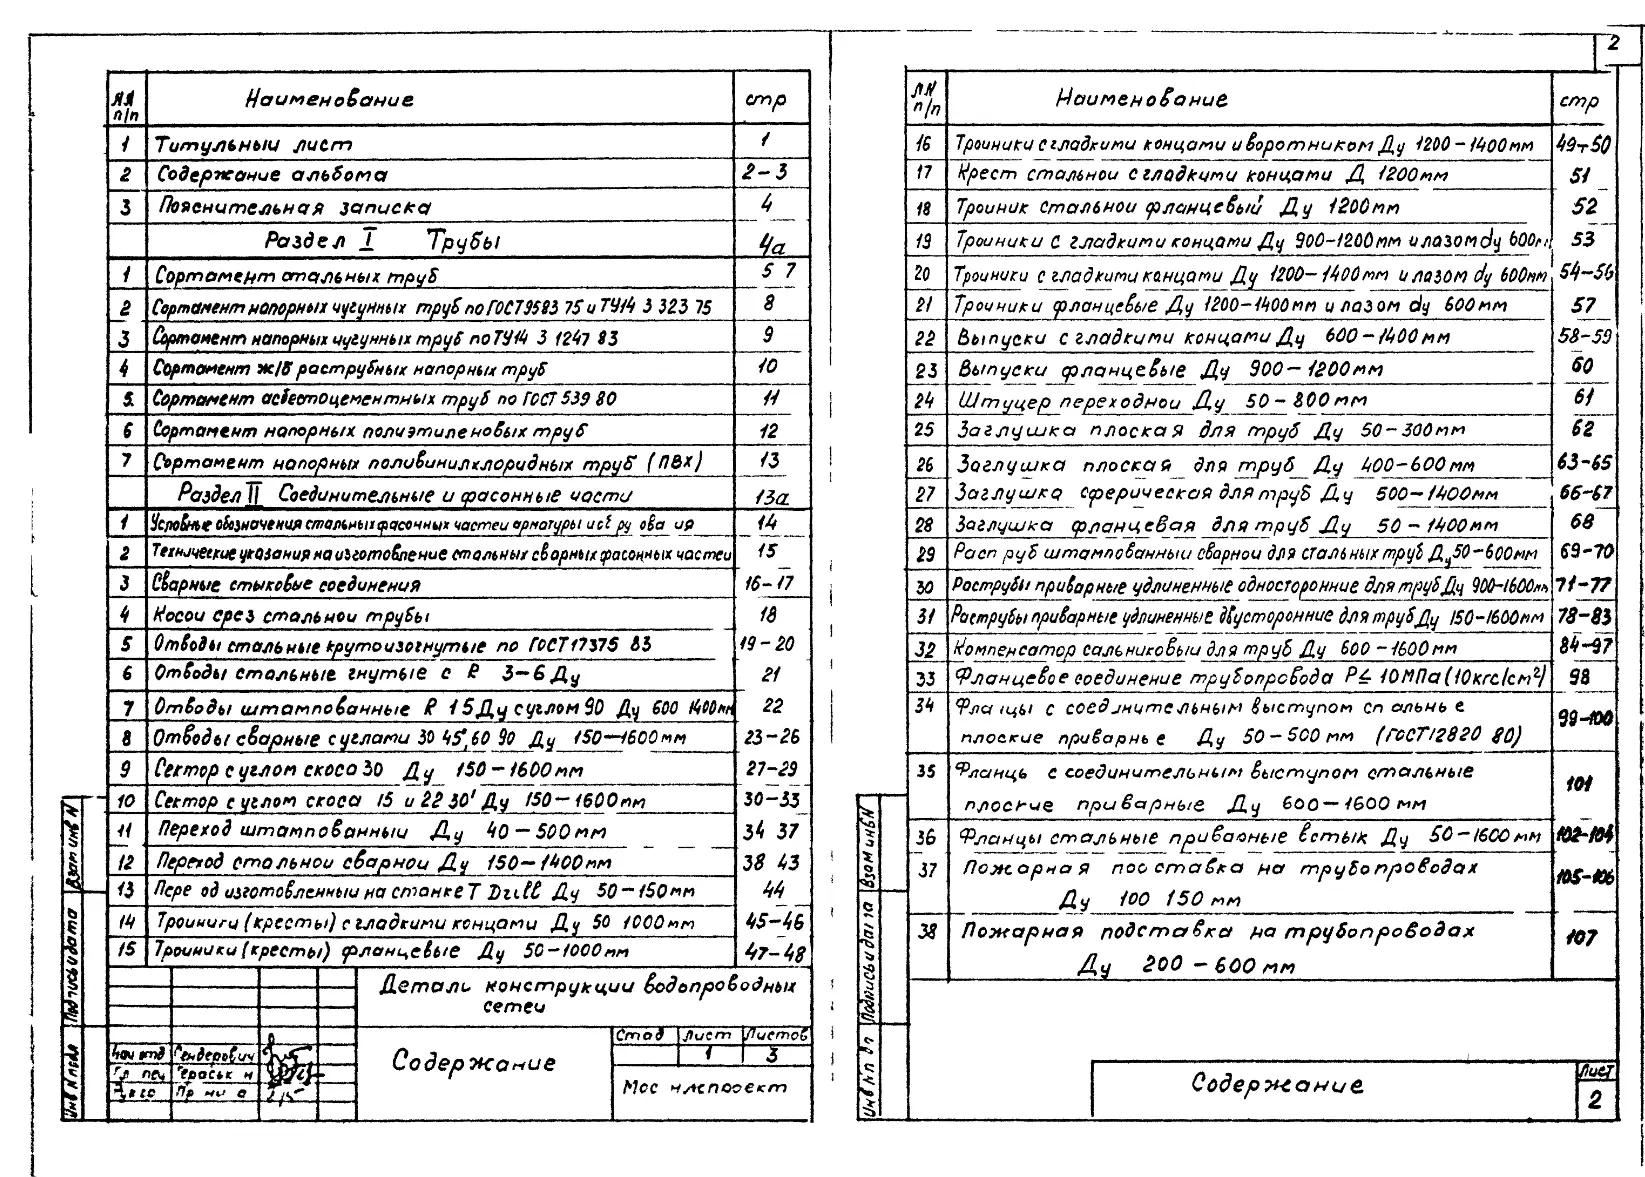 2
№№ п/п Наименование стр
1 Титульныи лист 1
2 Содержание альбома 2-3
3 Пояснительная записка 4
Раздел I Трубы 4а
1 Сортамент стальных труб 5 7
2 Сортамент напорных чугунных труб по ГОСТ 9583 75 и ТУ14 3 323 75 8
3 Сортамент напорных чугунных труб по ТУ14 3 1247 83 9
4 Сортамент ж/б раструбных напорных труб 10
5. Сортамент асбестоцементных труб по ГОСТ 539 80 11
6 Сортамент напорных полиэтиленовых труб 12
7 Сортамент напорных поливинилхлоридных труб (ПВХ) 13
Раздел II Соединительные и фасонные части 13а
1 Условные обозначения стальных фасонных частеи арматуры 14
2 Технические указания на изготовление стальных сварных фасонных частеи 15
3 Сварные стыковые соединения 16-17
4 Косои срез стальнои трубы 18
5 Отводы стальные крутоизогнутые по ГОСТ 17375 83 19-20
6 Отводы стальные гнутые с R 3-6 Ду 21
7 Отводы штампованные R 1 5 Ду с углом 90 Ду 600 1400мм 22
8 Отводы сварные с углами 30 45°, 60 90 Ду 150-1600мм 23-26
9 Сектор с углом скоса 30 Ду 150-1600мм 27-29
10 Сектор с углом скоса 15 и 22 30' Ду 150-1600мм 30-33
11 Переход штампованныи Ду 40-500мм 34 37
12 Переход стальнои сварнои Ду 150-1400мм 38 43
13 Пере од изготовленныи на станке T Drill Ду 50-150мм 44
14 Троиники (кресты) с гладкими концами Ду 50 1000мм 45-46
15 Троиники (кресты) фланцевые Ду 50-1000мм 47-48
Детали конструкции водопроводных
сетеи
Содержание
Стад Лист Листов
1 3
Нач отд Гендерович
Мос
Инв № подл Подпись и дата Взам инв №
№№ п/п Наименование стр
16 Троиники с гладкими концами и воротником Ду 1200-1400мм 49-50
17 Крест стальнои с гладкими концами Д 1200мм 51
18 Троиник стальнои фланцевый Ду 1200мм 52
19 Троиники с гладкими концами Ду 900-1200мм и лазом ду 600мм 53
20 Троиники с гладкими концами Ду 1200-1400мм и лазом ду 600мм 54-56
21 Троиники фланцевые Ду 1200-1400мм и лазом ду 600мм 57
22 Выпуски с гладкими концами Ду 600-1400мм 58-59
23 Выпуски фланцевые Ду 900-1200мм 60
24 Штуцер переходнои Ду 50-800мм 61
25 Заглушка плоская для труб Ду 50-300мм 62
26 Заглушка плоская для труб Ду 400-600мм 63-65
27 Заглушка сферическая для труб Ду 500-1400мм 66-67
28 Заглушка фланцевая для труб Ду 50-1400мм 68
29 Расп руб штампованныи сварнои для стальных труб Ду 50-600мм 69-70
30 Раструбы приварные удлиненные односторонние для труб Ду 900-1600мм 71-77
31 Раструбы приварные удлиненные двусторонние для труб Ду 150-1600мм 78-83
32 Компенсатор сальниковыи для труб Ду 600-1600мм 84-97
33 Фланцевое соединение трубопровода Р≤ 10МПа (10кгс/см²) 98
34 Фла цы с соединительным выступом ст альны е
плоские приварны е Ду 50-500мм (ГОСТ 12820 80) 99-100
35 Фланцы с соединительным выступом стальные
плоские приварные Ду 600-1600мм 101
36 Фланцы стальные приварные встык Ду 50-1600мм 102-104
37 Пожарная подставка на трубопроводах
Ду 100 150мм 105-106
38 Пожарная подставка на трубопроводах
Ду 200-600мм 107
Содержание
Лист
2
Инв № пл Подпись и дата Взам инв №